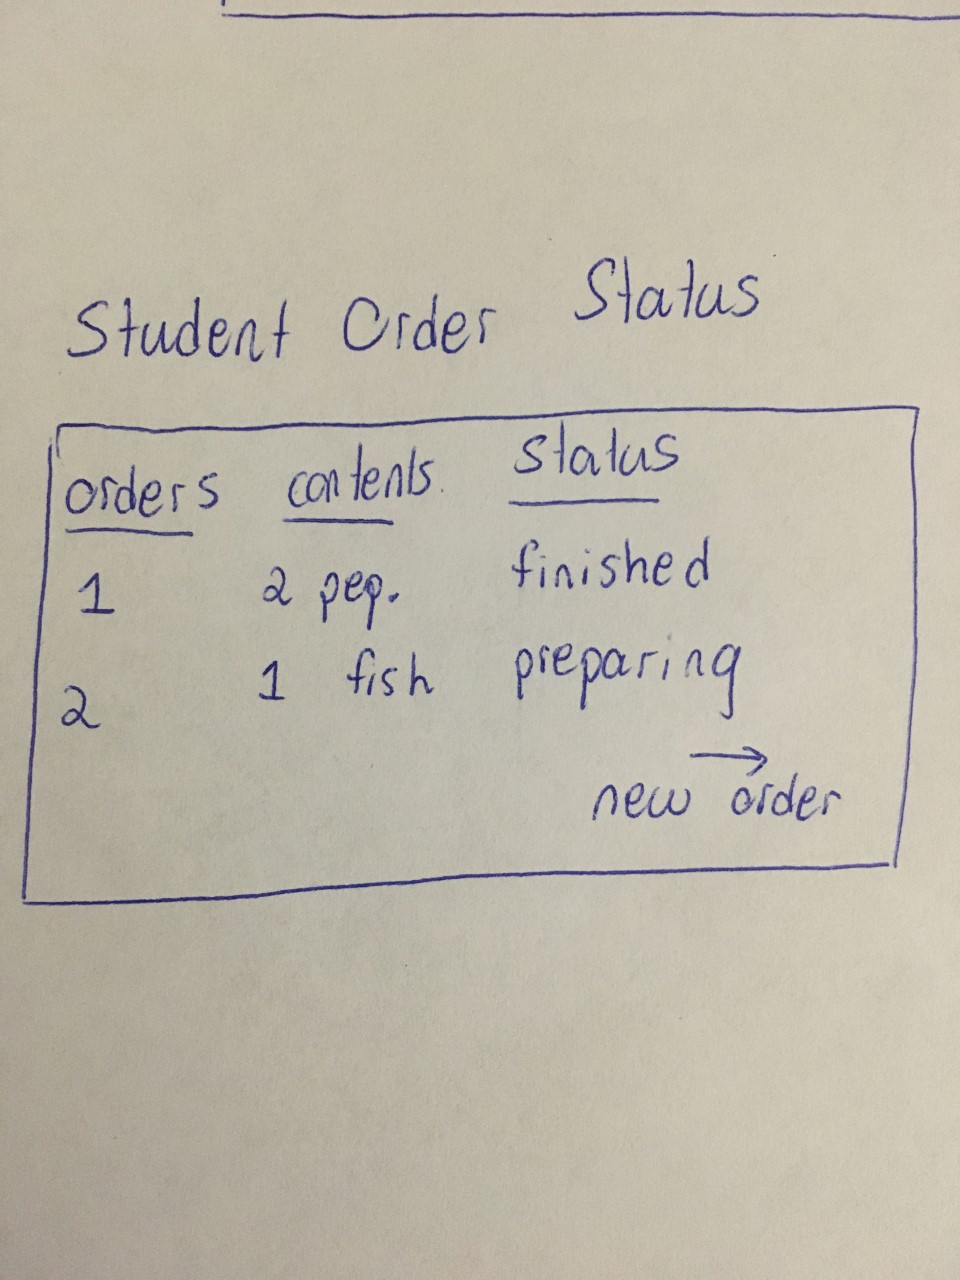 Student Order Status
orders contents status
1 2 pep. finished
2 1 fish preparing
→
new order